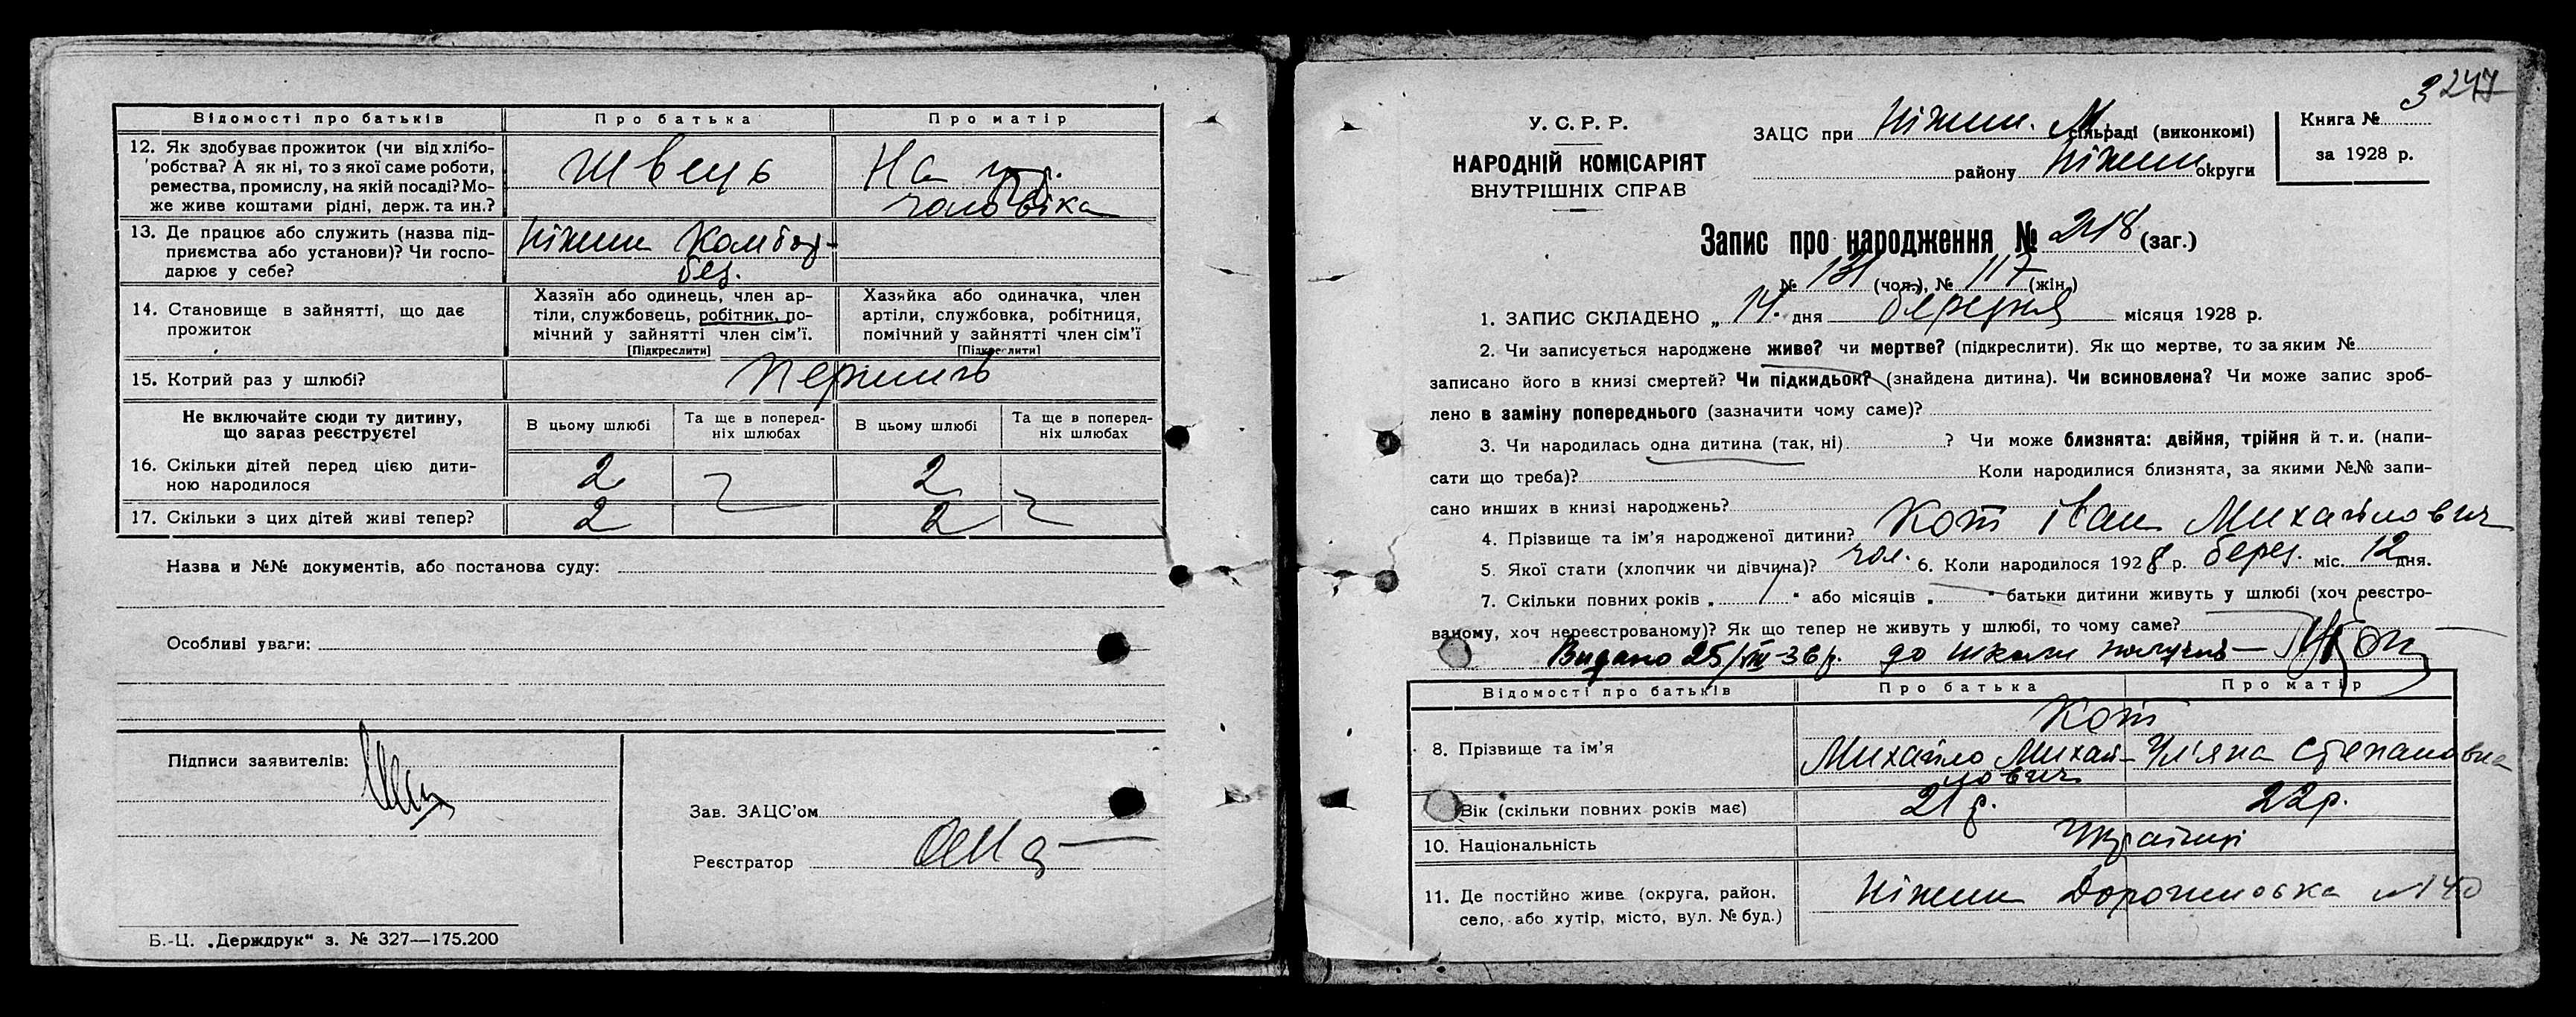 Відомості про батьків
Про батька
Про матір
12. Як здобуває прожиток (чи від хлібо-
робства? А як ні, то з якої саме роботи,
ремества, промислу, на якій посаді? Мо-
же живе коштами рідні, держ. та ин.?
Швець
На
чоловіка
13. Де працює або служить (назва під-
приємства або установи)? Чи госпо-
дарює у себе?
Ніжин Комбор-
без.
14. Становище в зайнятті, що дає
прожиток
Хазяїн або одинець, член ар-
тіли, службовець, робітник, по-
мічний у зайнятті член сім'ї.
[Підкреслити]
Хазяйка або одиначка, член
артіли, службовка, робітниця,
помічний у зайнятті член сім'ї
[Підкреслити]
15. Котрий раз у шлюбі?
Не включайте сюди ту дитину,
що зараз реєструєте!
В цьому шлюбі
Та ще в поперед-
ніх шлюбах
В цьому шлюбі
Та ще в поперед-
ніх шлюбах
16. Скільки дітей перед цією дити-
ною народилося
2
2
17. Скільки з цих дітей живі тепер?
2
2
Назва и №№ документів, або постанова суду:
Особливі уваги:
Підписи заявителів:
Зав. ЗАЦС'ом
Реєстратор
Б.-Ц. „Держдрук“ з. № 327—175.200
247
У. С. Р. Р.
НАРОДНІЙ КОМІСАРІЯТ
ВНУТРІШНІХ СПРАВ
ЗАЦС при Ніжин. М. сільраді (виконкомі)
району Ніжин округи
Книга № 3
за 1928 р.
Запис про народження № 248 (заг.)
№ 131 (чол.), № 117 (жін.)
1. ЗАПИС СКЛАДЕНО „ 14. дня березня місяця 1928 р.
2. Чи записується народжене живе? чи мертве? (підкреслити). Як що мертве, то за яким №
записано його в книзі смертей? Чи підкидьок? (знайдена дитина). Чи всиновлена? Чи може запис зроб-
лено в заміну попереднього (зазначити чому саме)?
3. Чи народилась одна дитина (так, ні) ? Чи може близнята: двійня, трійня й т. и. (напи-
сати що треба)? Коли народилися близнята, за якими №№ запи-
сано инших в книзі народжень?
4. Прізвище та ім'я народженої дитини? Кот Іван Михайлович
5. Якої стати (хлопчик чи дівчина)? чол. 6. Коли народилося 1928 р. берез. міс. 12 дня.
7. Скільки повних років „ “ або місяців „ “ батьки дитини живуть у шлюбі (хоч реєстро-
ваному, хоч нереєстрованому)? Як що тепер не живуть у шлюбі, то чому саме?
Видано 25/VIII-36 р. до школи получив
Відомості про батьків
Про батька
Про матір
Кот
8. Прізвище та ім'я
Михайло Михай-
лович
Уляна Степановна
Вік (скільки повних років має)
21 р.
22 р.
10. Національність
Українці
11. Де постійно живе (округа, район,
село, або хутір, місто, вул. № буд.)
Ніжин